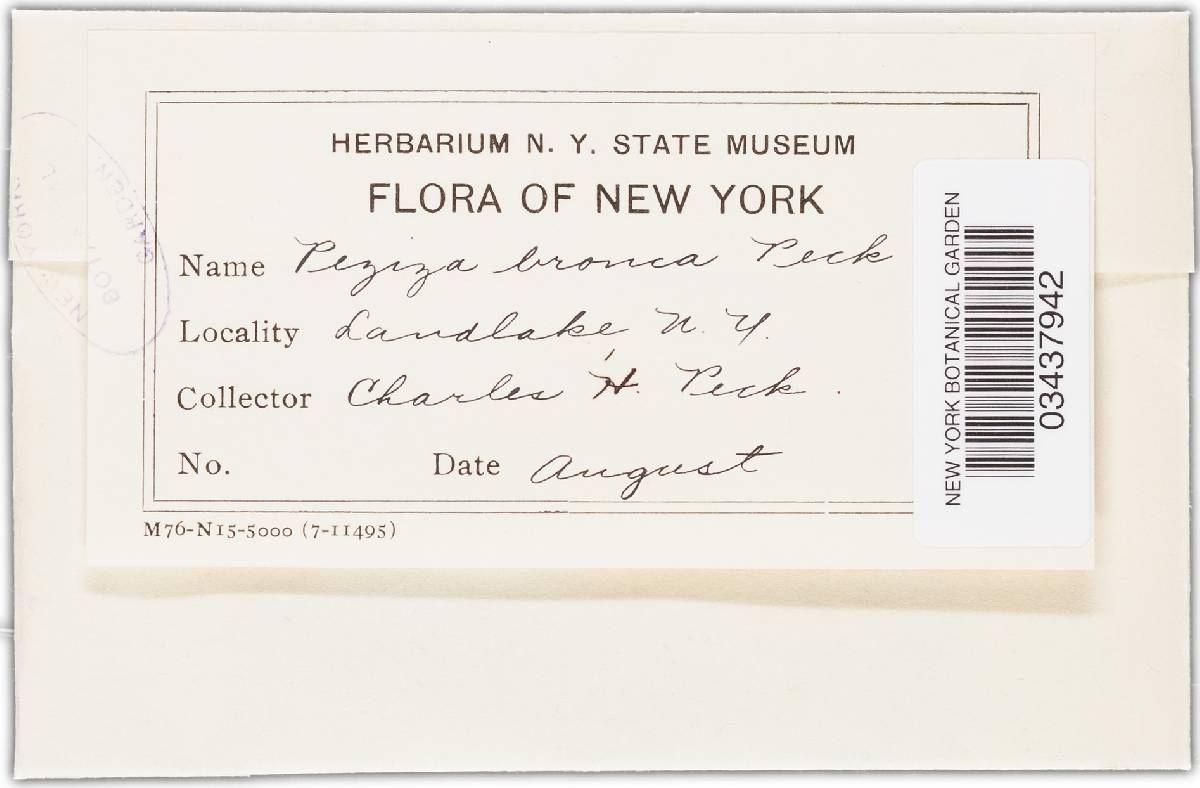 HERBARIUM N. Y. STATE MUSEUM
FLORA OF NEW YORK
Name Peziza bronca Peck
Locality Sandlake N. Y.
Collector Charles H. Peck .
No. Date August
M76-N15-5000 (7-11495)
NEW YORK BOTANICAL GARDEN
03437942
NEW YORK
BOTANICAL
GARDEN.